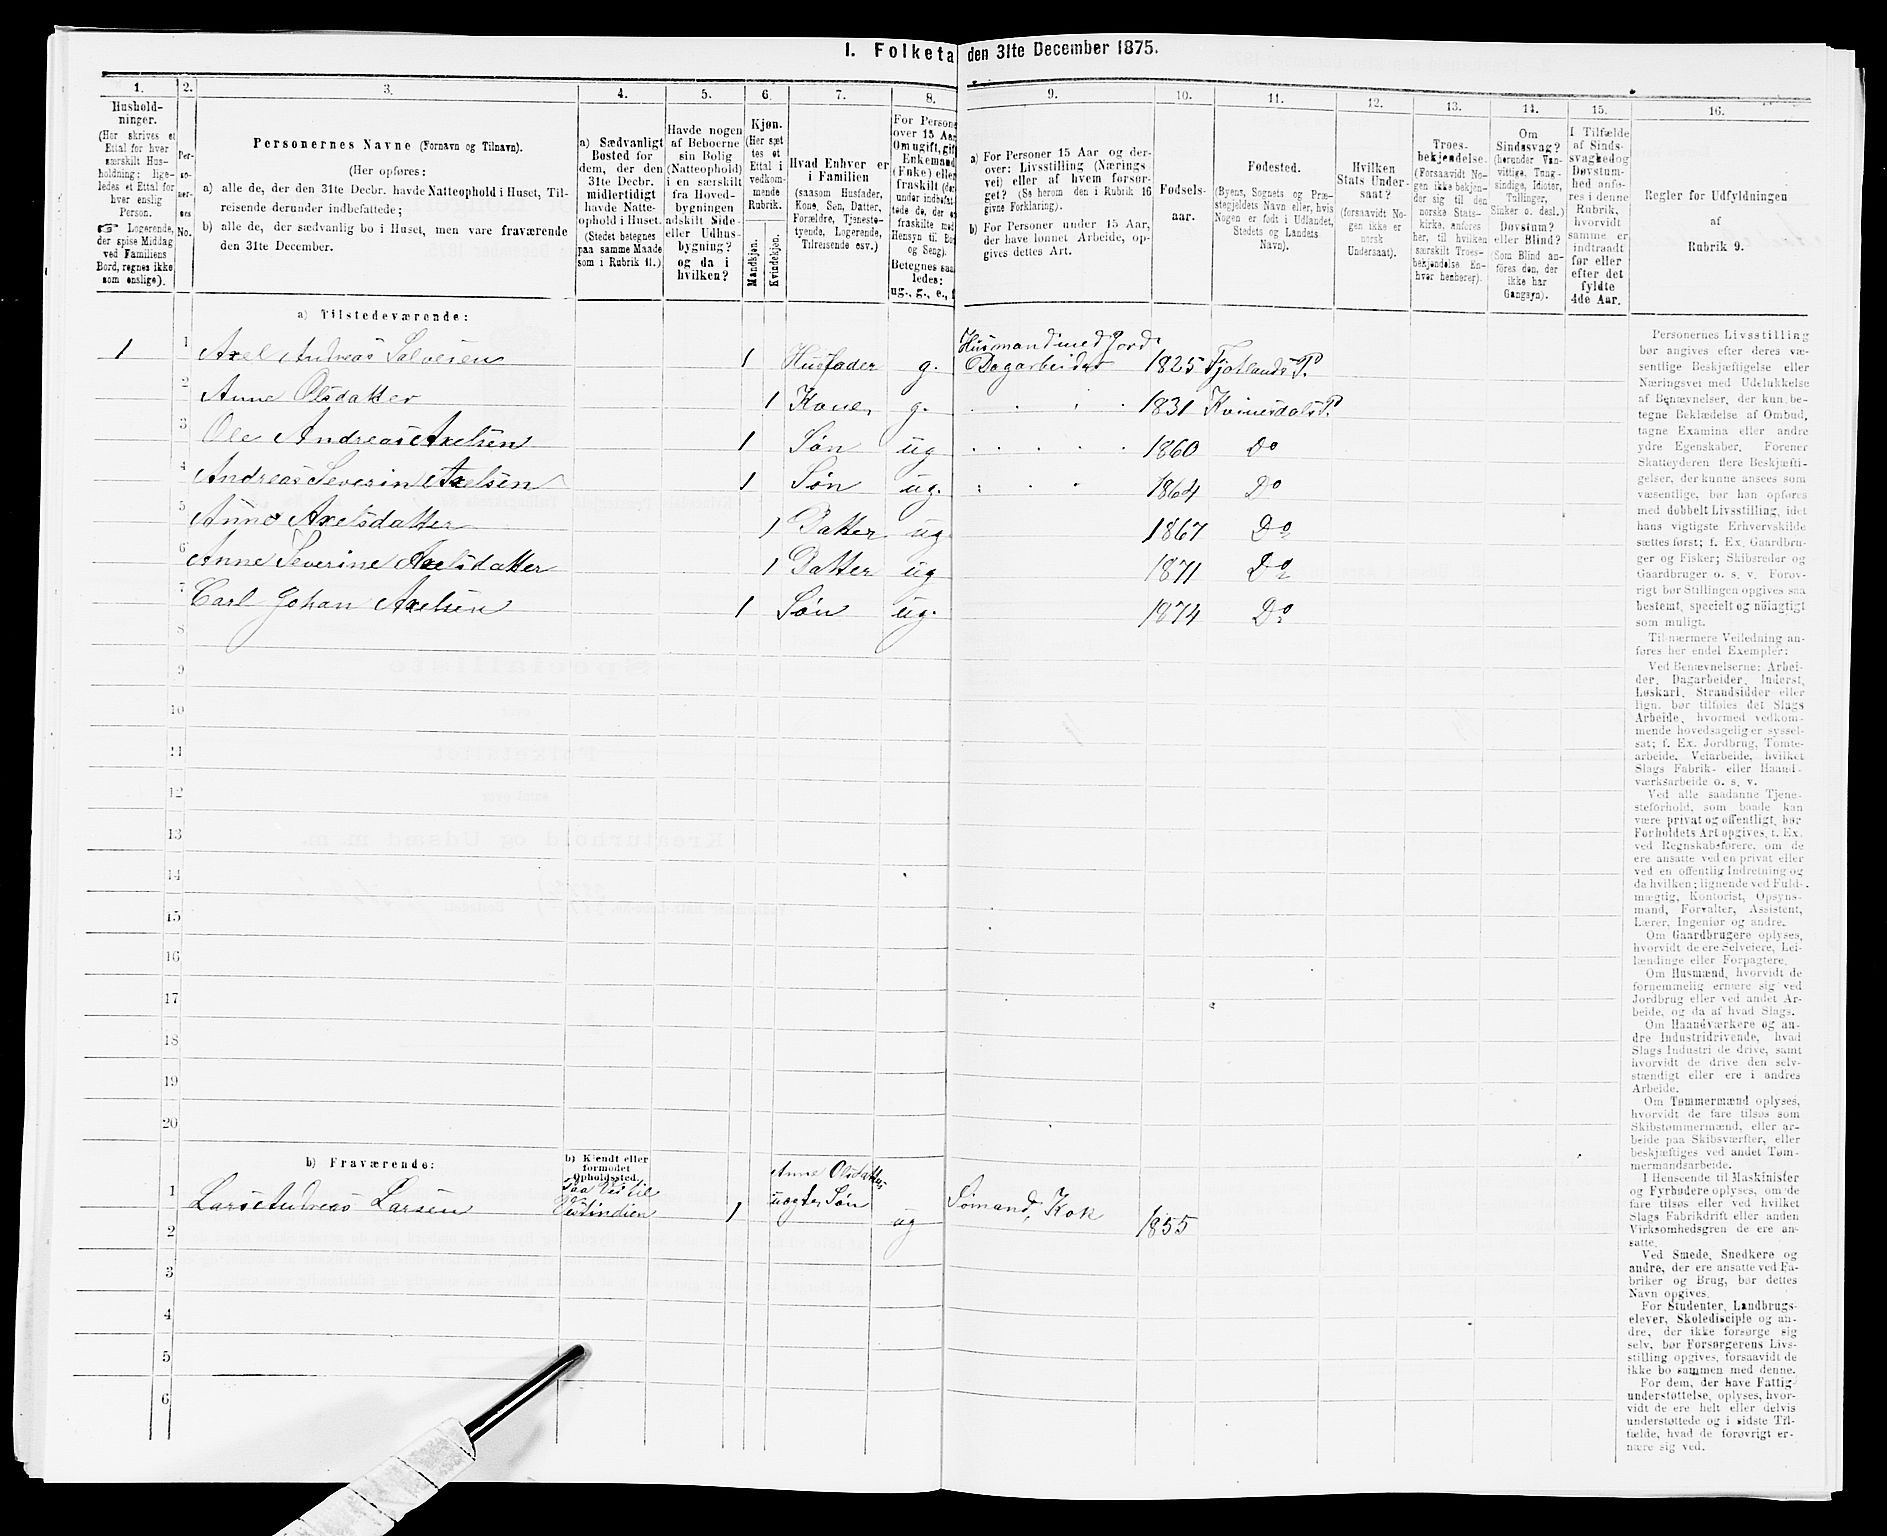 I. Folketa den 31te December 1875.
1. 2. 3. 4. 5. 6. 7. 8. 9. 10. 11. 12. 13. 14. 15. 16.
Hushold-
ninger.
(Her skrives et
Ettal for hver
særskilt Hus-
holdning; lige-
ledes et Ettal for
hver enslig
Person.
☞ Logerende,
der spise Middag
ved Familiens
Bord, regnes ikke
som enslige).
Per-
so-
ner-
nes
No.
Personernes Navne (Fornavn og Tilnavn).
(Her opføres:
a) alle de, der den 31te Decbr. havde Natteophold i Huset, Til-
reisende derunder indbefattede;
b) alle de, der sædvanlig bo i Huset, men vare fraværende
den 31te December.
a) Sædvanligt
Bosted for
dem, der den
31te Decbr.
midlertidigt
havde Natte-
ophold i Huset.
(Stedet betegnes
paa samme Maade
som i Rubrik 11.)
Havde nogen
af Beboerne
sin Bolig
(Natteophold)
i en særskilt
fra Hoved-
bygningen
adskilt Side-
eller Udhus-
bygning?
og da i
hvilken?
Kjøn.
(Her sæt-
tes et
Ettal i
vedkom-
mende
Rubrik.
Mandkjøn.
Kvindekjøn.
Hvad Enhver er
i Familien
(saasom Husfader,
Kone, Søn, Datter,
Forældre, Tjeneste-
tyende, Logerende,
Tilreisende osv.)
For Person
over 15 Aar
Om ugift, gift
Enkemand
(Enke) eller
fraskilt
Betegnes saa
ledes:
ug., g., e.,
a) For Personer 15 Aar og der-
over: Livsstilling (Nærings-
vei) eller af hvem forsør-
get? (Se herom den i Rubrik 16
givne Forklaring).
b) For Personer under 15 Aar,
der have lønnet Arbeide, op-
gives dettes Art.
Fødsels-
aar.
Fødested.
(Byens, Sognets og Præ-
stegjeldets Navn eller, hvis
Nogen er født i Udlandet,
Stedets og Landets
Navn).
Hvilken
Stats Under-
saat?
(forsaavidt No-
gen ikke er
norsk
Undersaat).
Troes-
bekjendelse.
(Forsaavidt No-
gen ikke bekjen-
der sig til den
norske Stats-
kirke, anføres
her, til hvilken
særskilt Troes-
bekjendelse En-
hver henhører).
Om
Sindssvag?
(herunder Van-
vittige, Tung-
sindige, Idioter,
Tullinger,
Sinker o. desl.)
Døvstum?
eller Blind?
(Som Blind an-
føres den, der
ikke har
Gangsyn).
I Tilfælde
af Sinds-
svaghed og
Døvstum-
hed anfø-
res i denne
Rubrik,
hvorvidt
samme er
indtraadt
før eller
efter det
fyldte
4de Aar.
Regler for Udfyldningen
af
Rubrik 9.
a) Tilstedeværende:
1 1 Axel Andreas Salvesen 1 Husfader g. Husmand med Jord Dagarbeider 1825 Fjotlands P.
2 Anne Olsdatter 1 Kone g. 1831 Kvinesdals P.
3 Ole Andreas Axelsen 1 Søn ug 1860 Do
4 Andreas Severin Axelsen 1 Søn ug. 1864 Do
5 Anne Axelsdatter 1 Datter ug 1867 Do
6 Anne Severine Axelsdatter 1 Datter ug 1871 Do
7 Carl Johan Axelsen 1 Søn ug. 1874 Do
8
9
10
11
12
13
14
15
16
17
18
19
20
b) Fraværende:
b) Kjendt eller
formodet
Opholdssted.
1 Lars Andreas Larsen Paa Vei til Vestindien 1 Anne Olsdatters uægte Søn ug Sømand, Kok 1855
2
3
4
5
6
Personernes Livsstilling
bør angives efter deres væ-
sentlige Beskjæftigelse eller
Næringsvei med Udelukkelse
af Benævnelser, der kun be-
tegne Beklædelse af Ombud,
tagne Examina eller andre
ydre Egenskaber. Forener
Skatteyderen flere Beskjæfti-
gelser, der kunne ansees som
væsentlige, bør han opføres
med dobbelt Livsstilling, idet
hans vigtigste Erhvervskilde
sættes først; f. Ex. Gaardbru-
ger og Fisker; Skibsreder og
Gaardbruger o. s. v. Forøv-
rigt bør Stillingen opgives saa
bestemt, specielt og nöiagtigt
som muligt.
Til nærmere Veiledning an-
føres her endel Exempler:
Ved Benævnelserne: Arbei-
der, Dagarbeider, Inderst,
Løskarl, Strandsidder eller
lign. bør tilføies det Slags
Arbeide, hvormed vedkom-
mende hovedsagelig er syssel-
sat; f. Ex. Jordbrug, Tomte-
arbeide, Veiarbeide, hvilket
Slags Fabrik- eller Haand-
værksarbeide o. s. v.
Ved alle saadanne Tjene-
steforhold, som baade kan
være privat og offentligt, bør
Forholdets Art opgives, t. Ex.
ved Regnskabsførere, om de
ere ansatte ved en privat eller
ved en offentlig Indretning og
da hvilken; lignende ved Fuld-
mægtig, Kontorist, Opsyns-
mand, Forvalter, Assistent,
Lærer, Ingeniør og andre.
Om Gaardbrugere oplyses,
hvorvidt de ere Selveiere, Lei-
lændinge eller Forpagtere.
Om Husmænd, hvorvidt de
fornemmelig ernære sig ved
Jordbrug eller ved andet Ar-
beide, og da af hvad Slags.
Om Haandværkere og an-
dre Industridrivende, hvad
Slags Industri de drive, samt
hvorvidt de drive den selv-
stændigt eller ere i andres
Arbeide.
Om Tømmermænd oplyses,
hvorvidt de fare tilsøs som
Skibstømmermænd, eller ar-
beide paa Skibsværfter, eller
beskjæftiges ved andet Tøm-
mermandsarbeide.
I Henseende til Maskinister
og Fyrbødere oplyses, om de
fare tilsøs eller ved hvilket
Slags Fabrikdrift eller anden
Virksomhedsgren de ere an-
satte.
Ved Smede, Snedkere og
andre, der ere ansatte ved Fa-
briker og Brug, bør dettes
Navn opgives.
For Studenter, Landbrugs-
elever, Skoledisciple og an-
dre, der ikke forsørge sig
selv, bør Forsørgerens Livs-
stilling opgives, forsaavidt de
ikke bo sammen med denne.
For dem, der have Fattig-
understøttelse, oplyses, hvor-
vidt de ere helt eller delvis
understøttede og i sidste Til-
fælde, hvad de forøvrigt er-
nære sig ved.